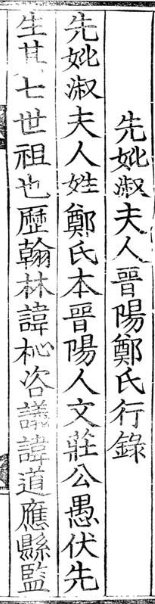 先妣淑夫人晉陽鄭氏行錄
先妣淑夫人姓鄭氏本晉陽人文莊公愚伏先
生其七世祖也歷翰林諱杺咨議諱道應縣監